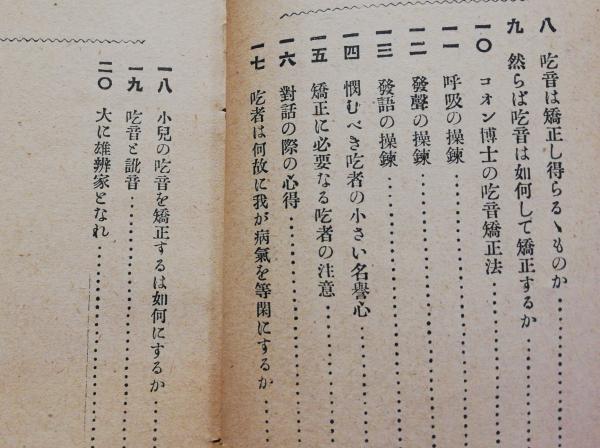 八 吃音は矯正し得らるゝものか
九 然らば吃音は如何して矯正するか
一〇 コオン博士の吃音矯正法
一一 呼吸の操鍊
一二 發聲の操鍊
一三 發語の操鍊
一四 憫むべき吃者の小さい名譽心
一五 矯正に必要なる吃者の注意
一六 對話の際の心得
一七 吃者は何故に我が病氣を等閑にするか
一八 小兒の吃音を矯正するは如何にするか
一九 吃音と訛音
二〇 大に雄辨家となれ